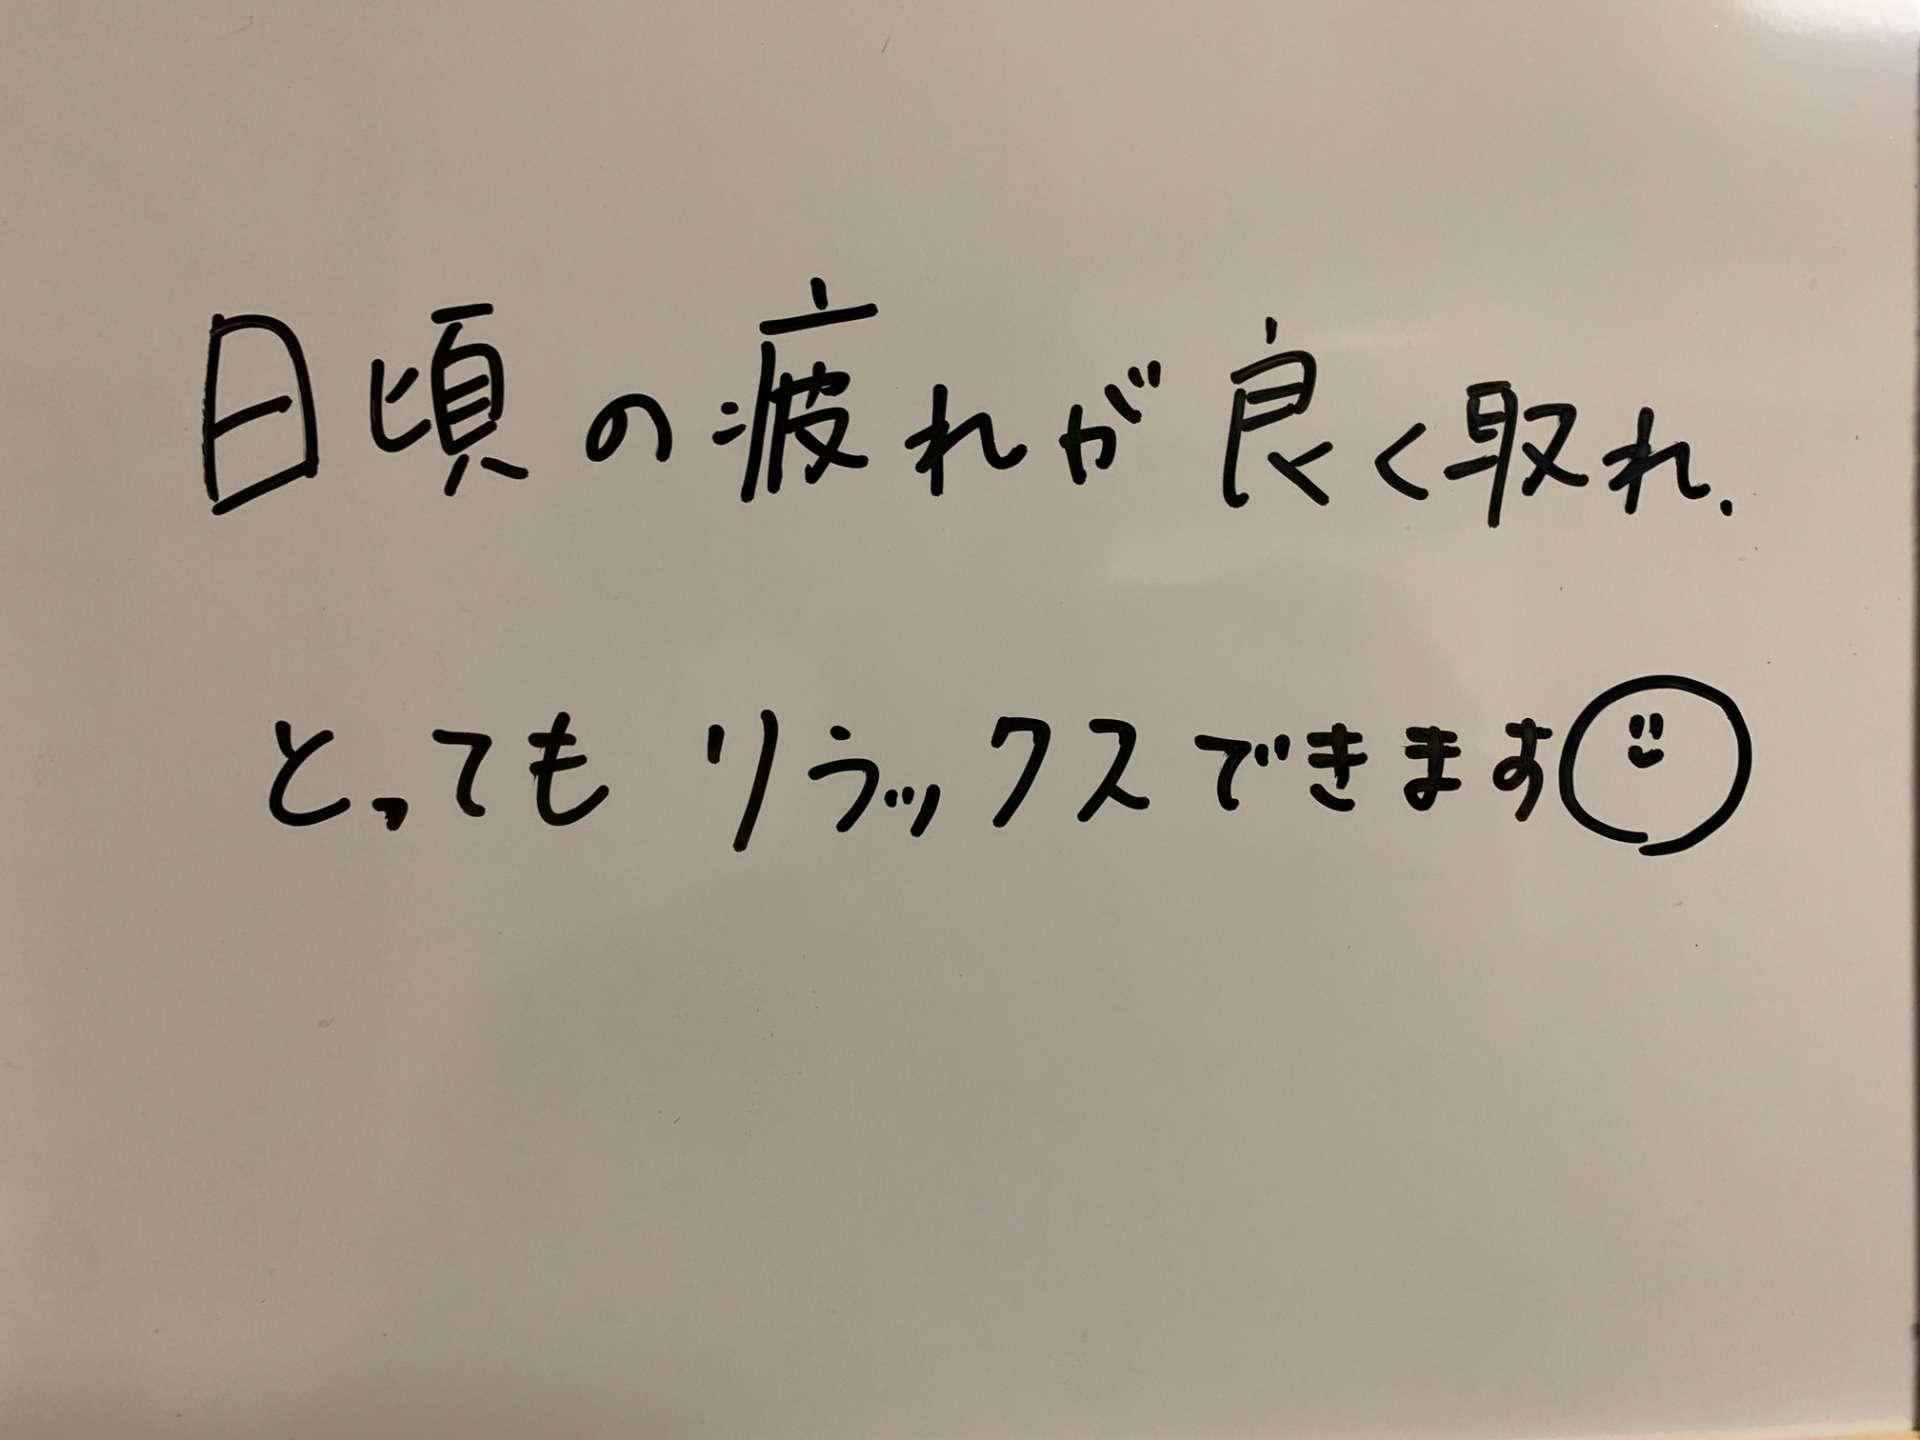 日頃の疲れが良く取れ.
とってもリラックスできます